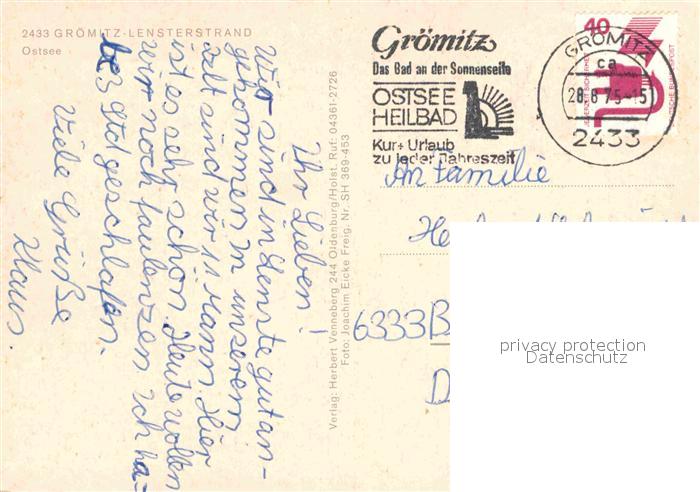 2433 GRÖMITZ-LENSTERSTRAND
Ostsee
Ihr Lieben!
Wir sind in Lenste gut an-
gekommen. In unserem
Zelt sind wir 11 Mann. Hier
ist es sehr schön. Heute wollen
wir noch faulenzen. Ich ha-
be 3 Std geschlafen.
Viele Grüße
Klaus.
Verlag: Herbert Venneberg 244 Oldenburg/Holst. Ruf: 04361-2726
Foto: Joachim Eicke Freig. Nr. SH 369-453
Grömitz
Das Bad an der Sonnenseite
OSTSEE
HEILBAD
Kur + Urlaub
zu jeder Jahreszeit
40
JEDERZEIT SICHERHEIT
DEUTSCHE BUNDESPOST
GRÖMITZ
ca
28.6.75-15
2433
An Familie
He
6333 B
D
privacy protection
Datenschutz